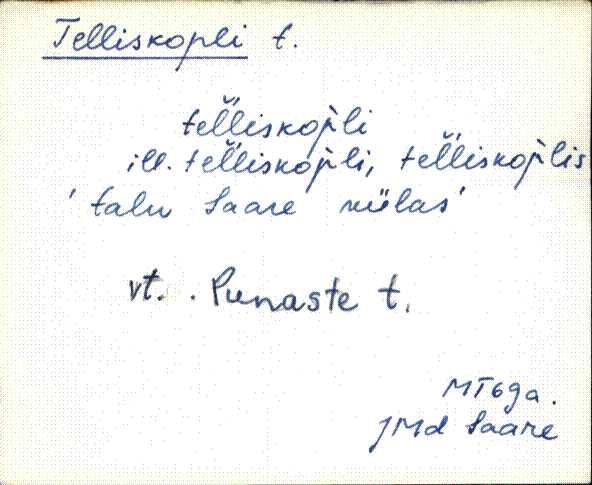 Telliskopli t.
tel̆liskop̀li
ill. tel̆liskop̀li, tel̆liskop̀lis
'talu Saare külas'
vt. Punaste t.
MT69a.
JMd Saare